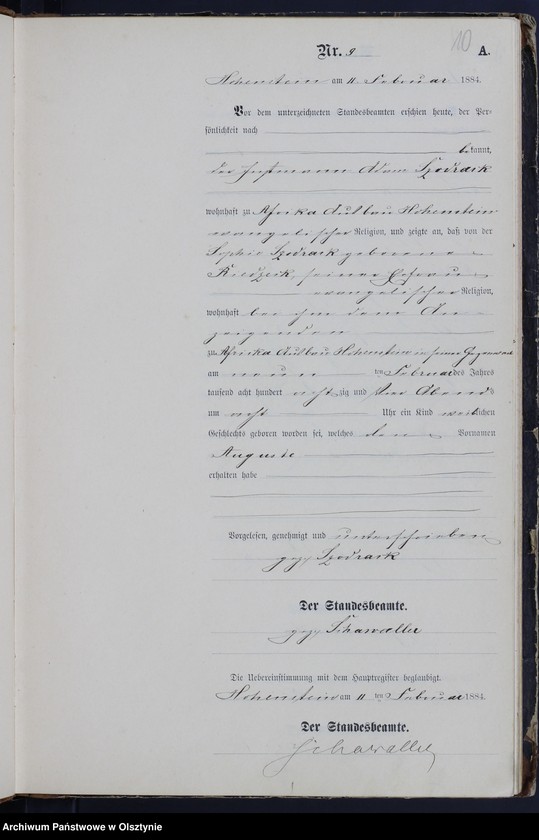 10
Nr. 9 A.
Hohenstein am 11. Februar 1884.
Vor dem unterzeichneten Standesbeamten erschien heute, der Per-
sönlichkeit nach
bekannt,
der Adam
wohnhaft zu Afrika Ausbau Hohenstein
evangelischer Religion, und zeigte an, daß von der
Sophie geborene
seiner Ehefrau
evangelischer Religion,
wohnhaft bei ihm dem An-
zeigenden
zu Afrika Ausbau Hohenstein in seiner Gegenwart
am neun ten Februar des Jahres
tausend acht hundert acht zig und vier Abends
um acht Uhr ein Kind weiblichen
Geschlechts geboren worden sei, welches den Vornamen
Auguste
erhalten habe
Vorgelesen, genehmigt und unterschrieben
gez
Der Standesbeamte.
gez Schawaller
Die Uebereinstimmung mit dem Hauptregister beglaubigt.
Hohenstein am 11 ten Februar 1884.
Der Standesbeamte.
Schawaller
Archiwum Państwowe w Olsztynie